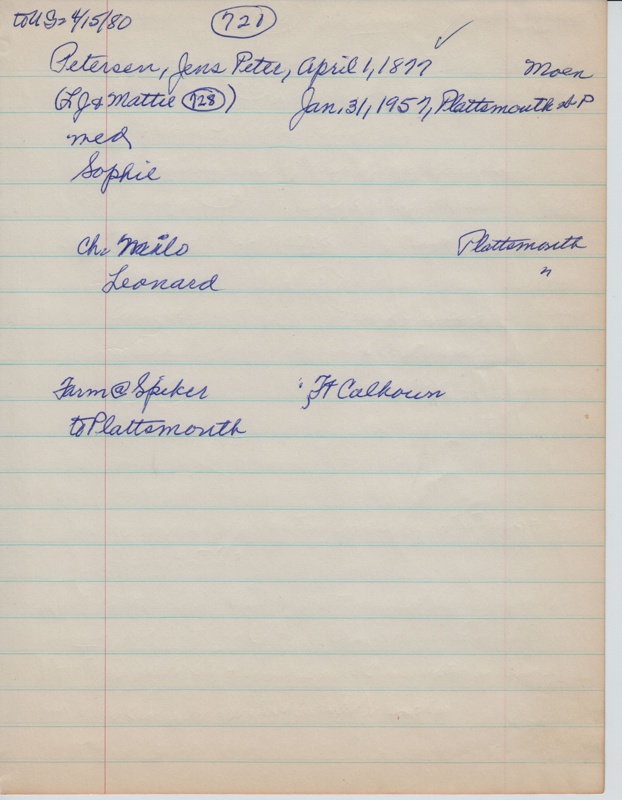 to U.S. 4/15/80 721
Petersen, Jens Peter, April 1, 1877 Moen
(L J & Mattie 728) Jan. 31, 1957, Plattsmouth
med
Sophie
Ch. Milo Plattsmouth
Leonard "
Farm @ Spiker Ft Calhoun
to Plattsmouth